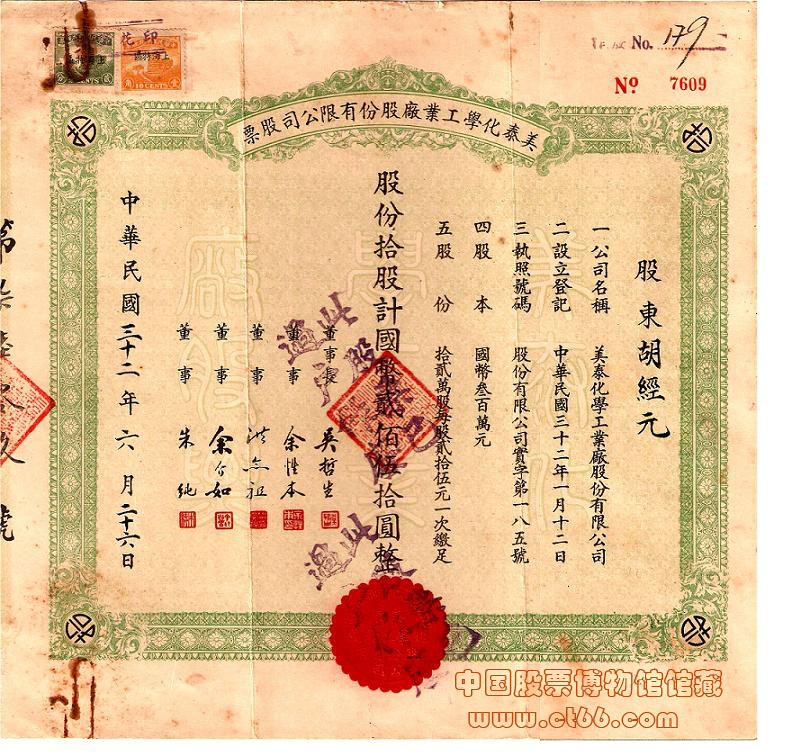 印花
上海
上海
10 CENTS
No. 179
Nº 7609
美泰化學工業廠股份有限公司股票
股東胡經元
一公司名稱 美泰化學工業廠股份有限公司
二設立登記 中華民國三十二年一月十二日
三執照號碼 股份有限公司實字第一八五號
四股本 國幣叁百萬元
五股份 拾貳萬股每股貳拾伍元一次繳足
股份拾股計國幣貳佰伍拾圓整
董事長 吳哲生
董事 余性本
董事
董事 余介如
董事 朱純
中華民國三十二年六月二十六日
此股已過戶
此 過
中国股票博物馆馆藏
www.ct66.com